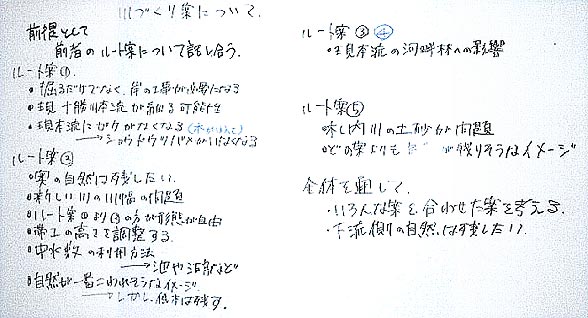 川づくり案について
前提として
前者のルート案について話し合う。
ルート案①
・掘るだけでなく、岸の工事が必要になる
・現十勝川本流が荒れる可能性
・現本流にガケがなくなる(水が
→ショウドウツバメがいなくなる
ルート案②
・奥の自然は残したい。
・新しい川の川幅の問題
・ルート案①より②の方が形態が自由
・高さを調整する。
・中水敷の利用方法
→池や
・自然が一番こわれそうなイメージ
→しかし、低木は残す。
ルート案③④
・現本流の河畔林への影響
ルート案⑤
・内川の土砂が問題
・どの案よりも が残りそうなイメージ
全体を通して
・いろんな案を合わせた案を考える。
・下流側の自然は残したい。